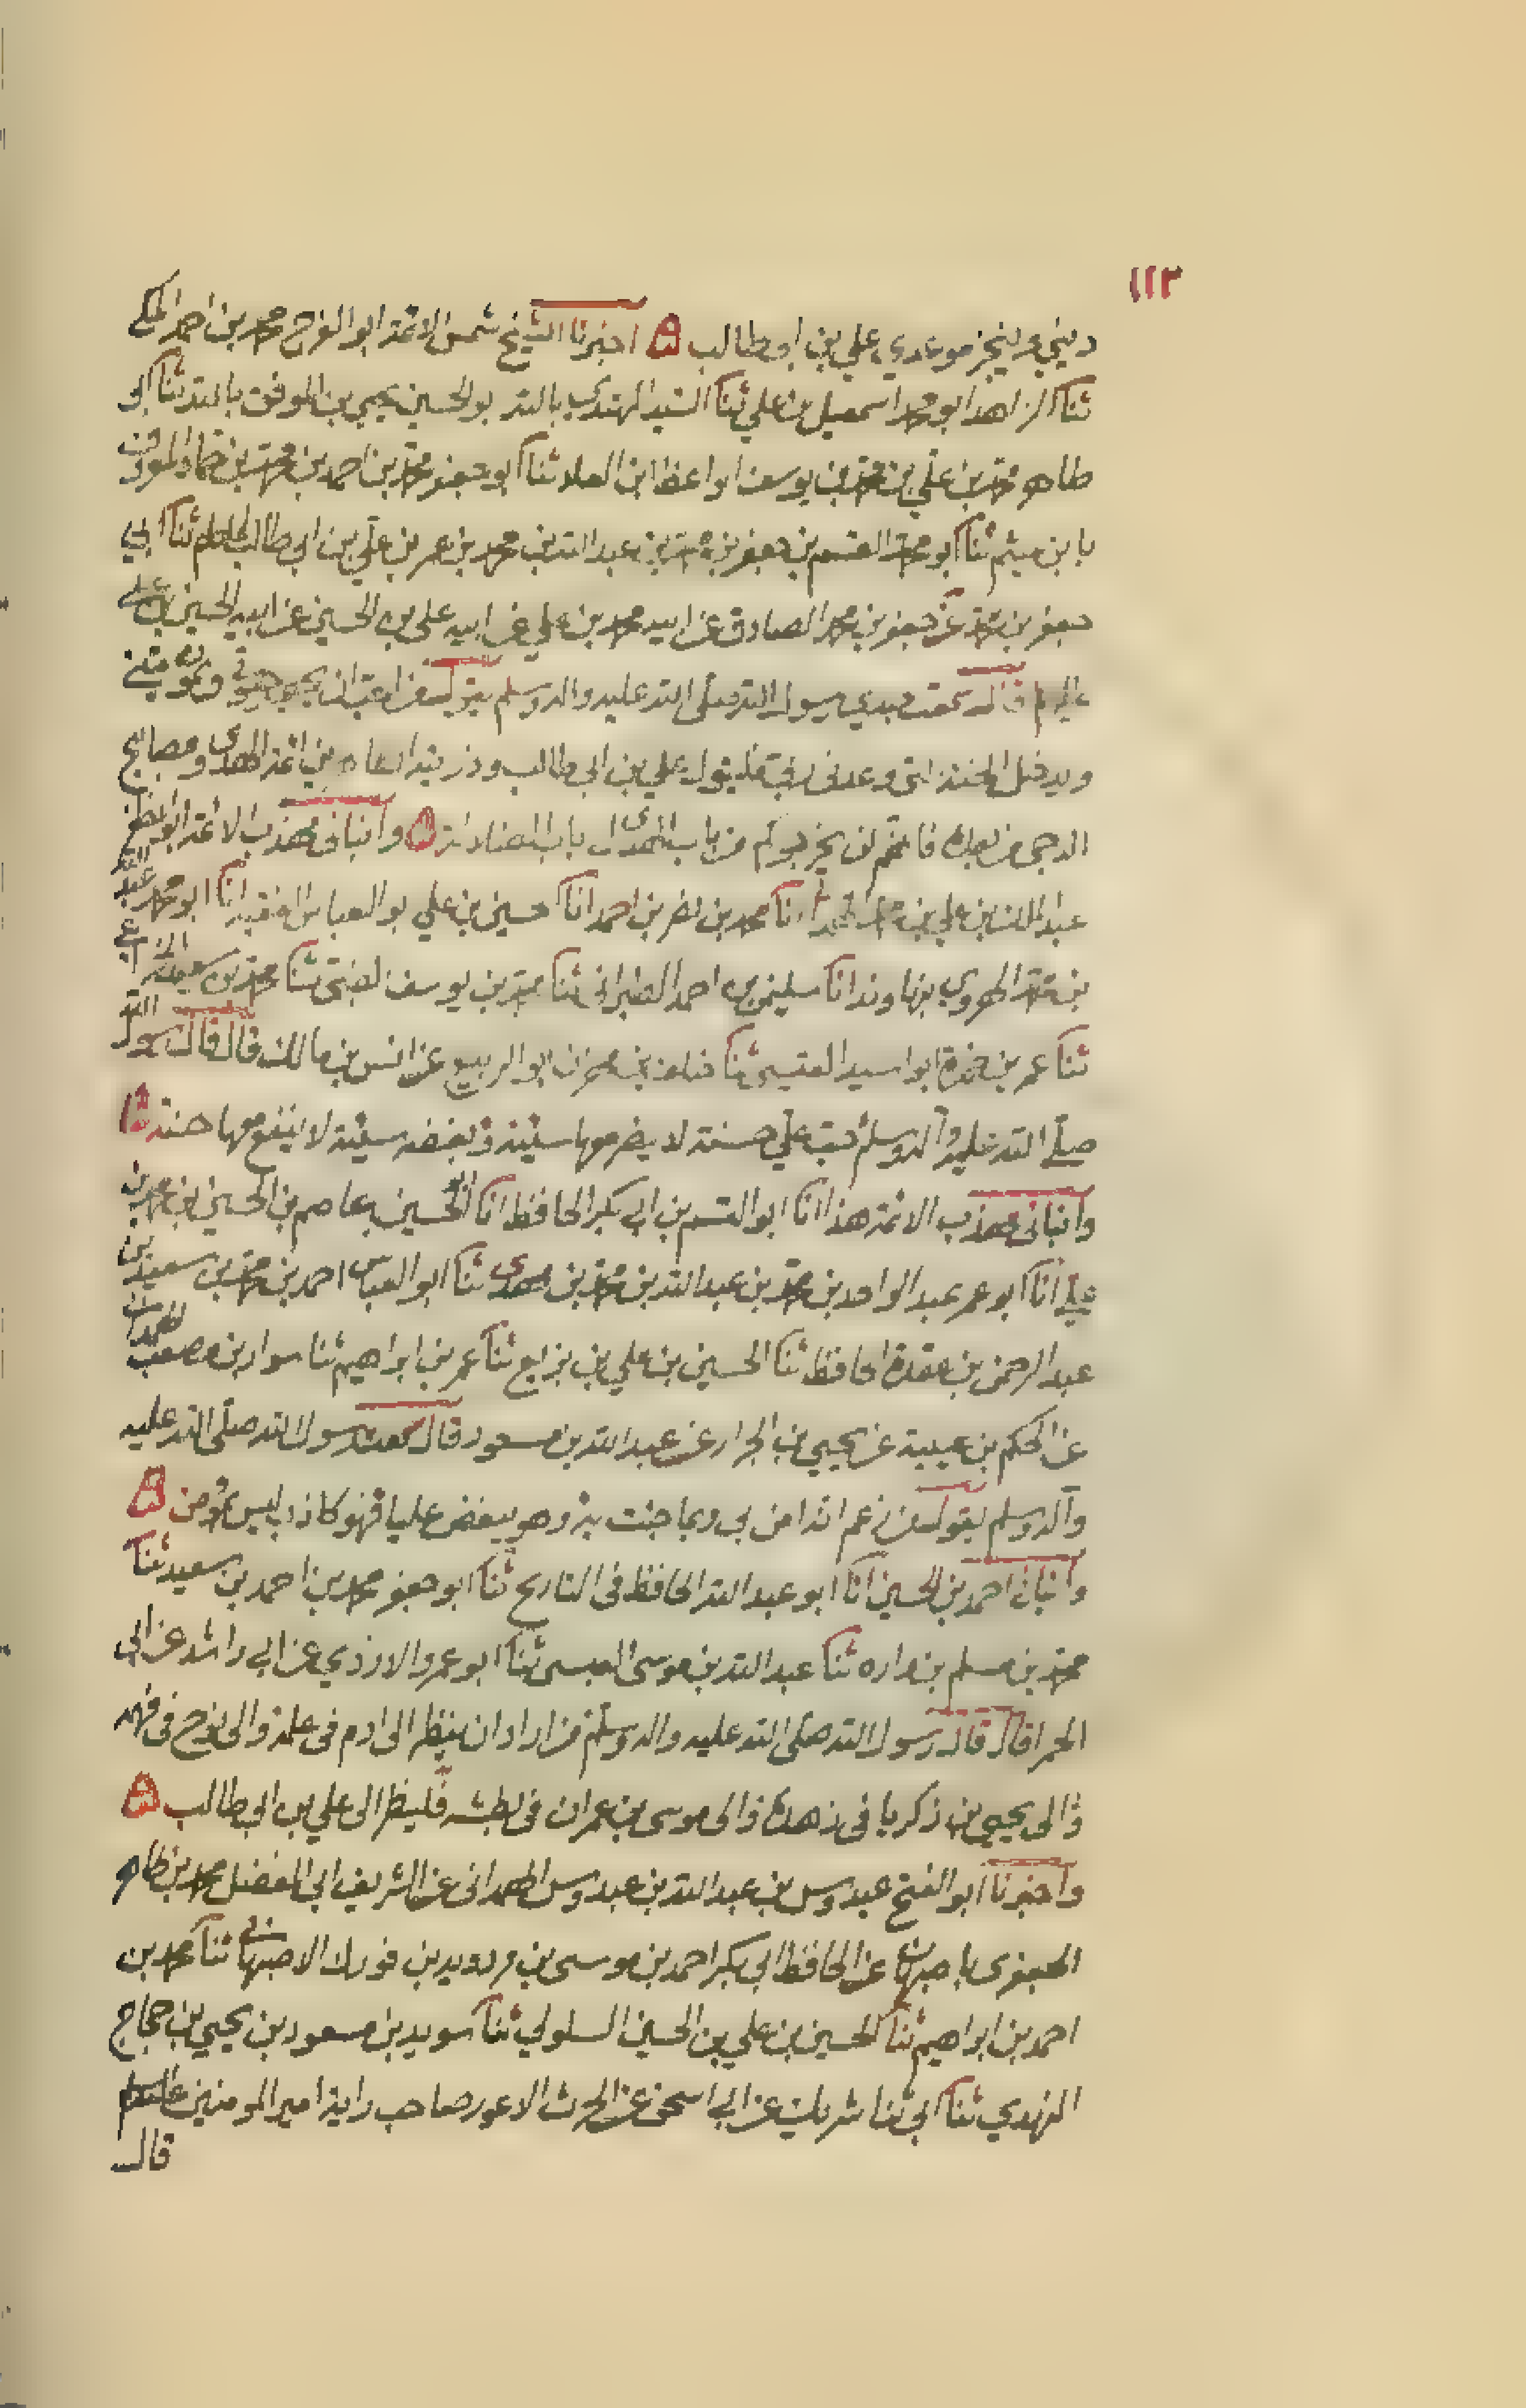 ١١٢
ديني وينجز موعدي علي بن ابي طالب ۵ اخبرنا الشيخ شمس الائمة ابو الفرج محمد بن احمد المكي
ثنا الزاهد ابو محمد اسمعيل بن علي ثنا السيد المهتدي بالله بو الحسين يحيى بن الموفق بالله ثنا ابو
طاهر محمد بن علي بن محمد بن يوسف الواعظ ابن العلاف ثنا ابو جعفر محمد بن احمد بن محمد بن حماد المعروف
بابن ميثم ثنا ابو محمد القسم بن جعفر بن محمد بن عبد الله بن محمد بن عمر بن علي بن ابي طالب ثنا ابي
جعفر بن محمد عن جعفر بن محمد الصادق عن ابيه محمد بن علي عن ابيه علي بن الحسين عن ابيه الحسين بن علي
قال سمعت جدي رسول الله صلى الله عليه واله وسلم يقول من احب ان يحيى حيوتي ويموت ميتتي
ويدخل الجنة التي وعدني ربي فليتول علي بن ابي طالب وذريته الطاهرين ائمة الهدى ومصابيح
الدجى من بعده فانهم لن يخرجوكم من باب الهدى الى باب الضلالة ۵ وانباني مهذب الائمة ابو المظفر
عبد الملك بن علي بن محمد الهمداني انا محمد بن نصر بن احمد انا حسين بن علي بو العباس الفقيه انا ابو محمد عبد الله
بن محمد الهروي بنهاوند انا سليمن بن احمد الطبراني ثنا محمد بن يوسف الضبي ثنا محمد بن سعيد الخزاعي
ثنا عمر بن حمزة ابو اسيد القيسي ثنا خلف بن مهران ابو الربيع عن انس بن مالك قال قال رسول الله
صلى الله عليه وآله وسلم حب علي حسنة لا يضر معها سيئة وبغضه سيئة لا ينفع معها حسنة ۵
وانباني مهذب الائمة هذا انا ابو القسم بن ابي بكر الحافظ انا ابو الحسين عاصم بن الحسين بن محمد بن
علي انا ابو عمر عبد الواحد بن محمد بن عبد الله بن محمد بن مهدى ثنا ابو العباس احمد بن محمد بن سعيد بن
عبد الرحمن بن عقدة الحافظ ثنا الحسين بن علي بن بزيع ثنا عمر بن ابراهيم ثنا سوار بن مصعب الهمداني
عن الحكم بن عيينة عن يحيى بن الجزار عن عبد الله بن مسعود قال سمعت رسول الله صلى الله عليه
وآله وسلم يقول من زعم انه امن بي وبما جئت به وهو يبغض عليا فهو كاذب ليس بمؤمن ۵
وانباني احمد بن الحسين انا ابو عبد الله الحافظ في التاريخ ثنا ابو جعفر محمد بن احمد بن سعيد ثنا
محمد بن مسلم بن واره ثنا عبد الله بن موسى العبسي ثنا ابو عمرو الازدي عن ابي راشد عن ابي
الحمرا قال قال رسول الله صلى الله عليه واله وسلم من اراد ان ينظر الى ادم في علمه والى نوح في فهمه
والى يحيى بن زكريا في زهده والى موسى بن عمران في بطشه فلينظر الى علي بن ابي طالب ۵
واخبرنا ابو الفتح عبدوس بن عبد الله بن عبدوس الهمداني عن الشريف ابي المفضل محمد بن طاهر
الجعفرى باصبهان عن الحافظ ابي بكر احمد بن موسى بن مردويه بن فورك الاصبهاني ثنا محمد بن
احمد بن ابراهيم ثنا الحسين بن علي بن الحسين السلولي ثنا سويد بن مسعود بن يحيى بن حجاج
النهدي ثنا ابي ثنا شريك عن ابي اسحق عن الحرث الاعور صاحب راية امير المومنين عليه السلام
قال